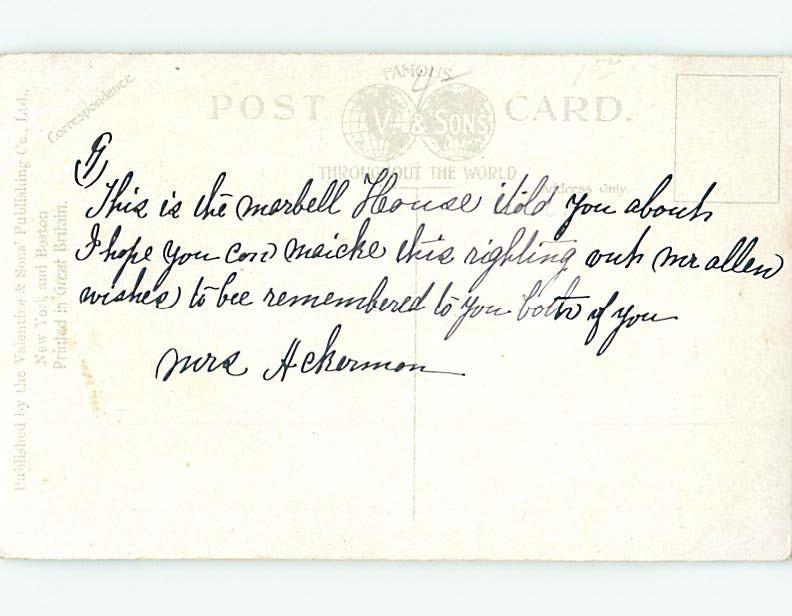 FAMOUS
4
POST CARD.
V. & SONS
THROUGHOUT THE WORLD
Correspondence.
Address Only.
This is the marbell House itold you about
I hope you can maicke this righting out mr allen
wishes to bee remembered to you both of you
mrs Ackerman
Published by the Valentine & Sons' Publishing Co., Ltd.,
New York and Boston
Printed in Great Britain.